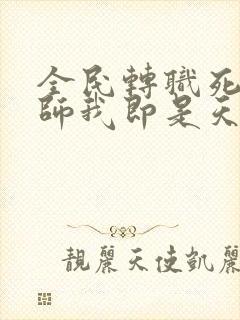 全民轉職死
師我即是天
靚麗天使凱麗